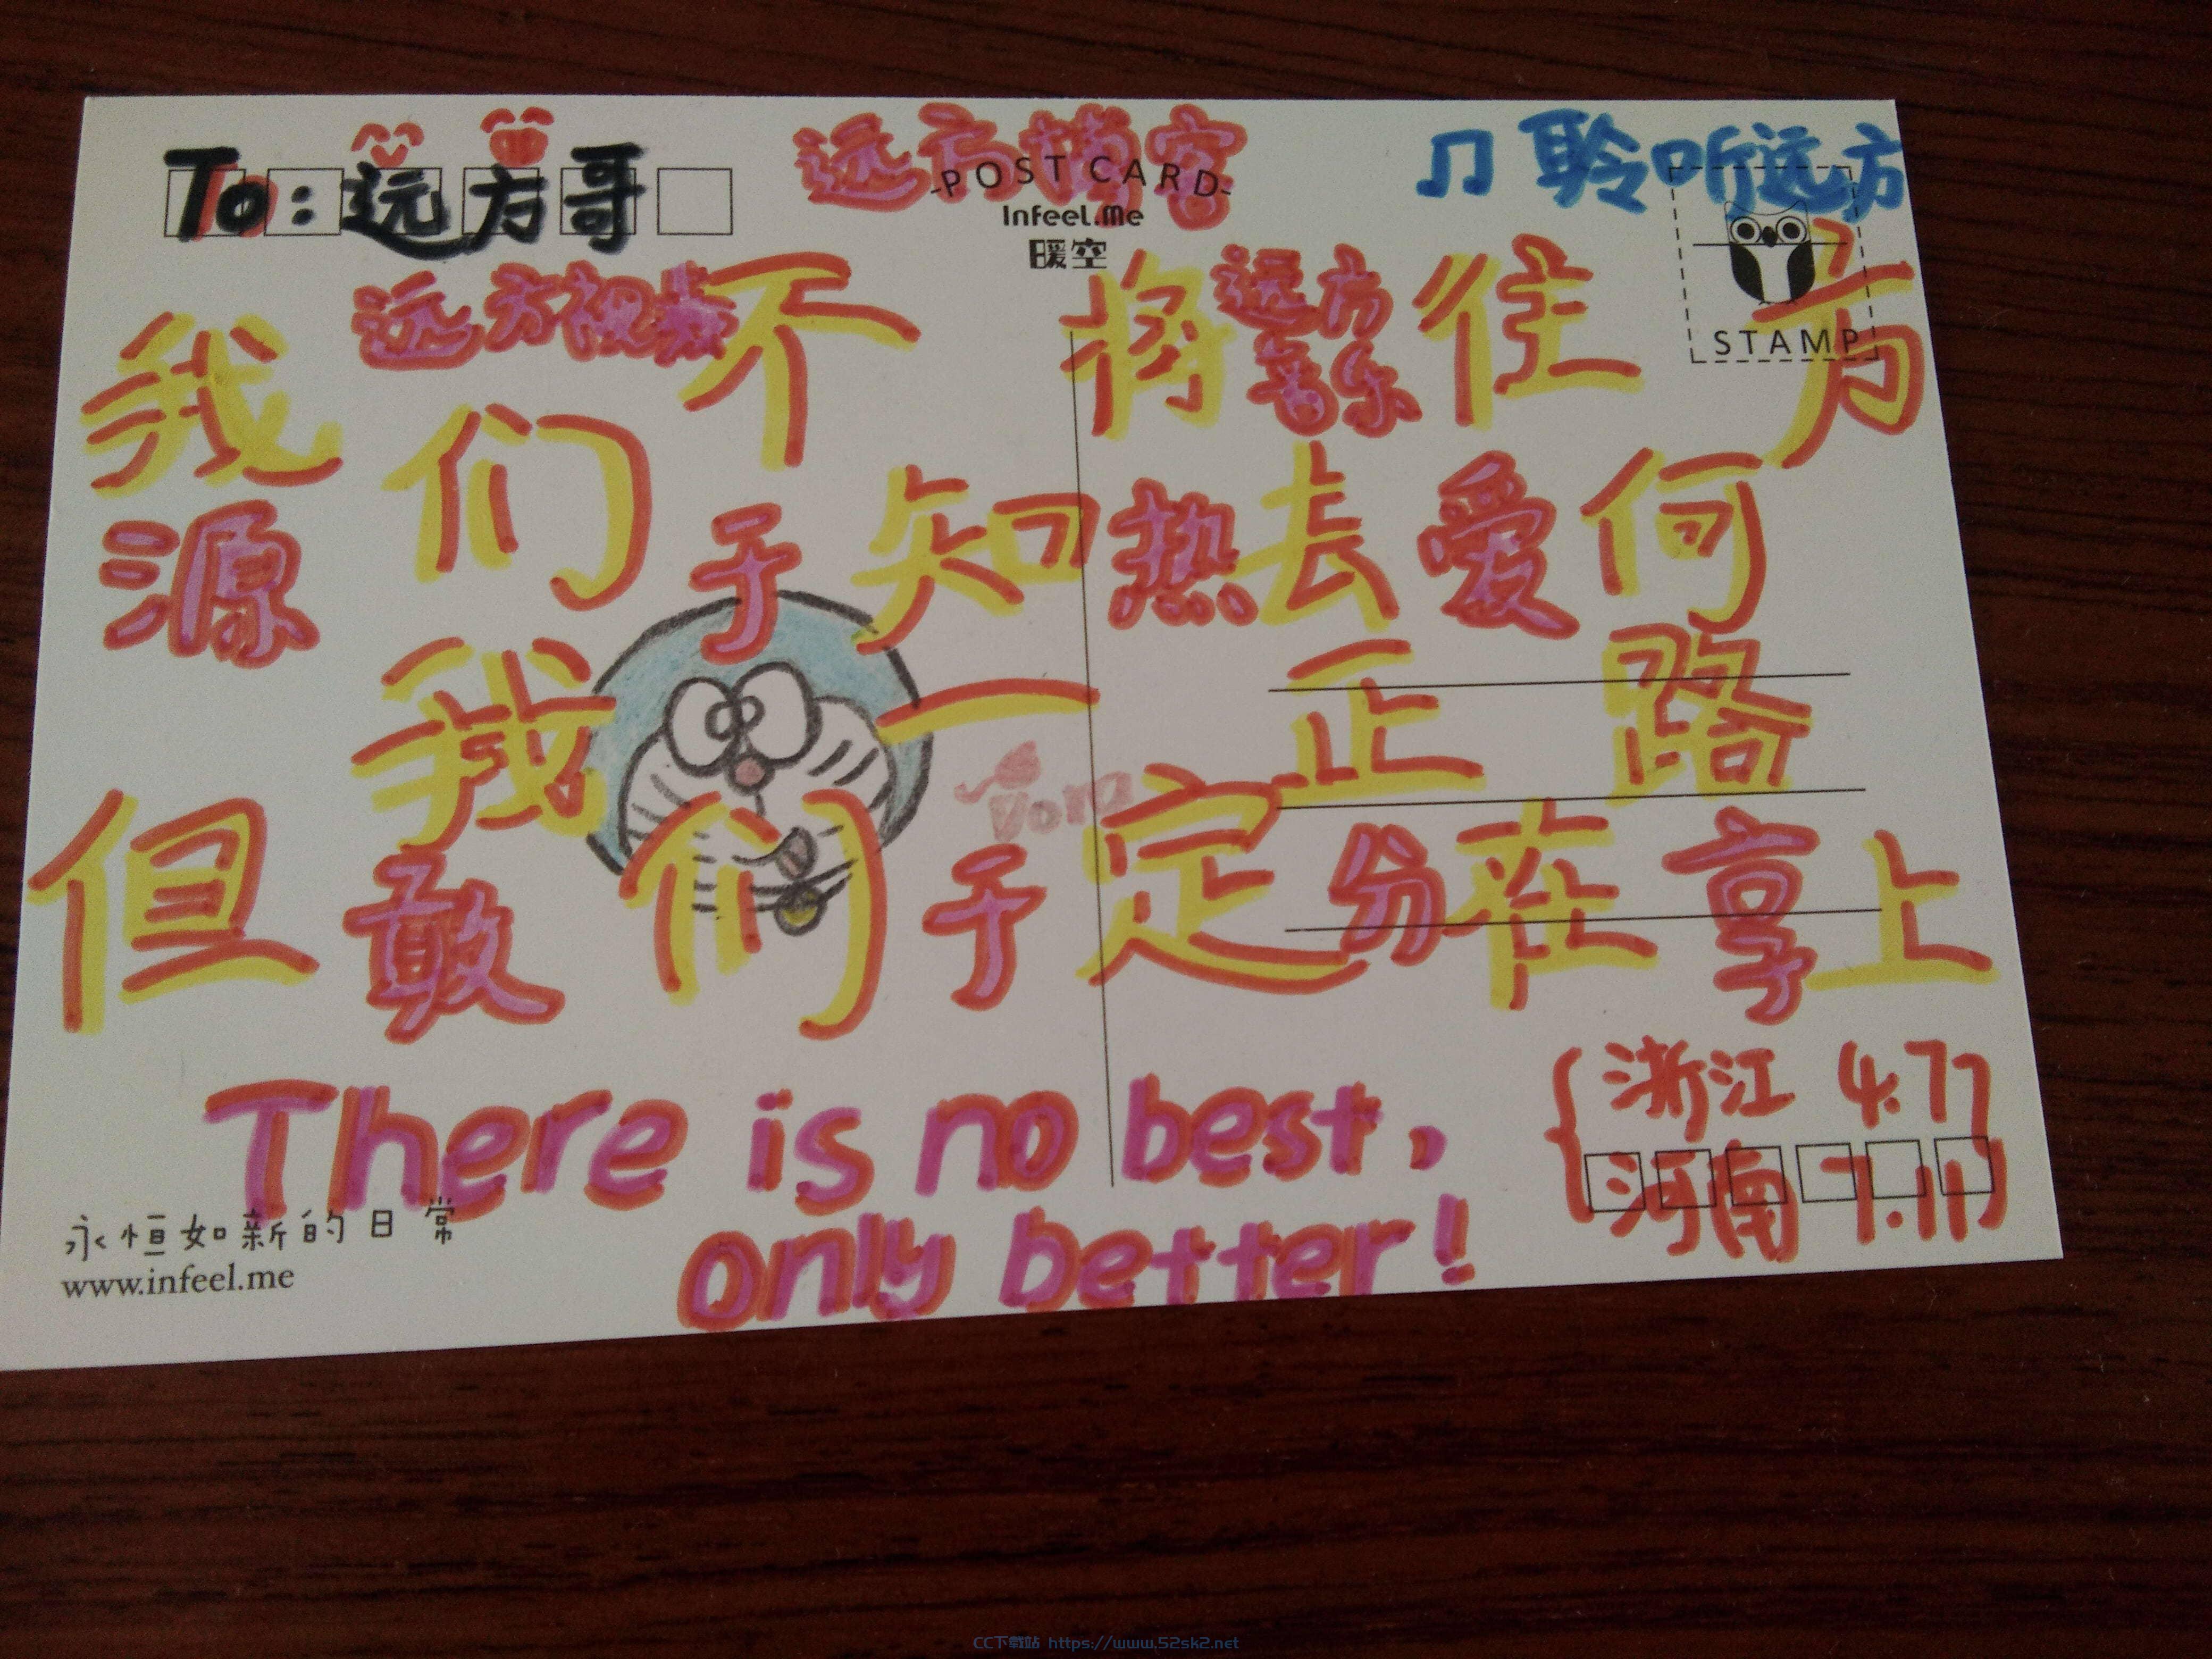 To:远方哥
远方博客
-POST CARD-
Infeel.Me
暖空
♫ 聆听远方
STAMP
远方视界
远方音乐
我们不知将去往何方
源于热爱
但我们一定正在路上
敢于分享
Dora
There is no best,
only better!
浙江 4.7
河南 7.11
永恒如新的日常
www.infeel.me
CC下载站 https://www.52sk2.net